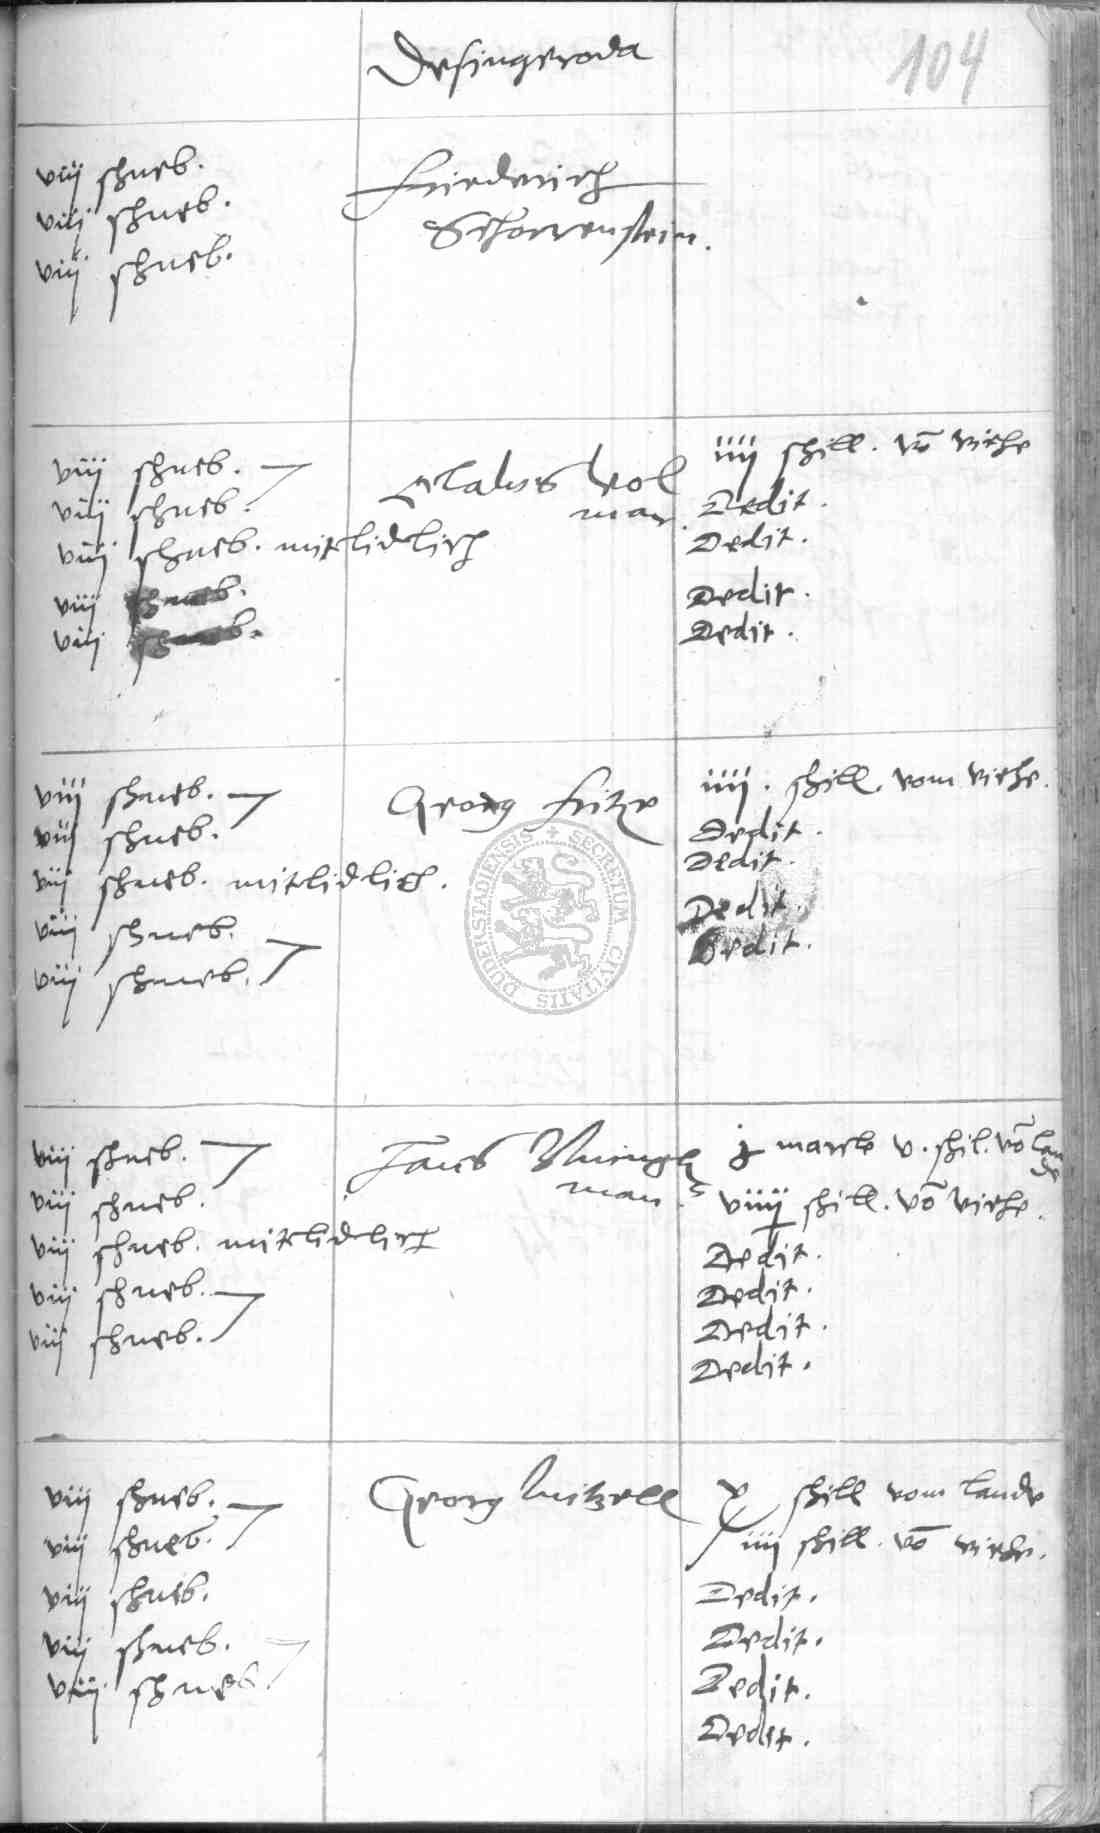 Desingeroda
104
viij schneb.
viij schneb.
viij schneb.
Friederich
Schorrenstein.
viij schneb.
viij schneb.
viij schneb. mitlidlich
viij schneb.
viij schneb.
Clawes Vol
man.
iiij schill. võ viehe
Dedit.
Dedit.
Dedit.
Dedit.
viij schneb.
viij schneb.
viij schneb. mitlidlich.
viij schneb.
viij schneb.
Georg Fritze
iiij. schill. vom viehe.
Dedit.
Dedit.
Dedit.
Dedit.
SECRETUM CIVITATIS DUDERSTADIENSIS
viij schneb.
viij schneb.
viij schneb. mitlidlich
viij schneb.
viij schneb.
Hans
man
j marck v. schil. võ lande
schill. võ viehe.
Dedit.
Dedit.
Dedit.
Dedit.
viij schneb.
viij schneb.
viij schneb.
viij schneb.
viij schneb.
Georg
schill vom lande
iiij schill. võ viehe.
Dedit.
Dedit.
Dedit.
Dedit.